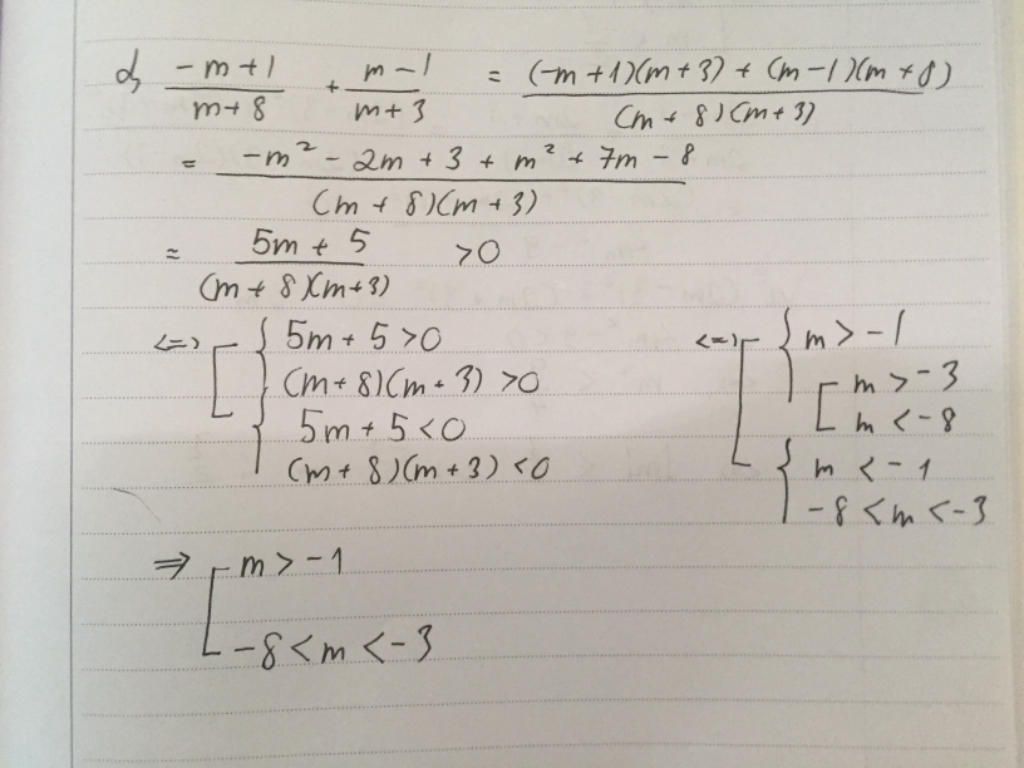 d, (-m+1)/(m+8) + (m-1)/(m+3) = ((-m+1)(m+3) + (m-1)(m+8))/((m+8)(m+3))
= (-m² - 2m + 3 + m² + 7m - 8)/((m+8)(m+3))
= (5m + 5)/((m+8)(m+3)) >0
<=> [ { 5m + 5 >0
(m+8)(m+3) >0
{ 5m + 5 <0
(m+8)(m+3) <0
<=> [ { m > -1
[ m > -3
m < -8
{ m < -1
-8 < m < -3
⇒ [ m > -1
-8 < m < -3